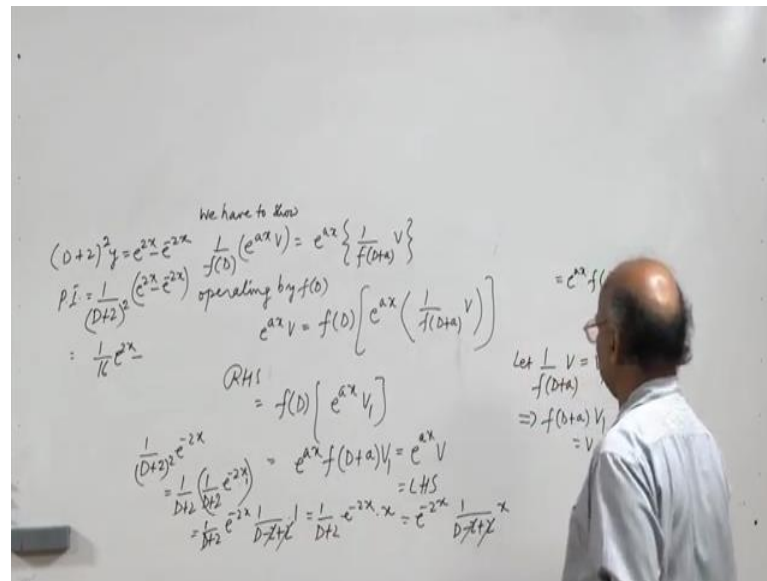 We have to show
(D+2)²y = e^{2x} - e^{-2x}
P.I. = 1/(D+2)² (e^{2x} - e^{-2x})
= 1/16 e^{2x} -
1/f(D) (e^{ax} V) = e^{ax} { 1/f(D+a) V }
operating by f(D)
e^{ax} V = f(D) [ e^{ax} ( 1/f(D+a) V ) ]
RHS
= f(D) [ e^{ax} V₁ ]
= e^{ax} f(D+a) V₁ = e^{ax} V
= LHS
1/(D+2)² e^{-2x}
= 1/(D+2) ( 1/(D+2) e^{-2x} )
= 1/(D+2) e^{-2x} 1/(D-2+2) 1 = 1/(D+2) e^{-2x} · x = e^{-2x} 1/(D-2+2) x
= e^{ax} f(
Let 1/f(D+a) V =
⇒ f(D+a) V₁
= V